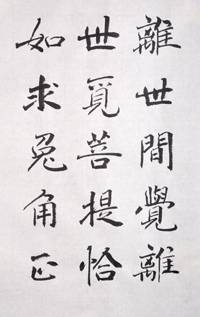 離世間覺離
世覓菩提恰
如求兔角正